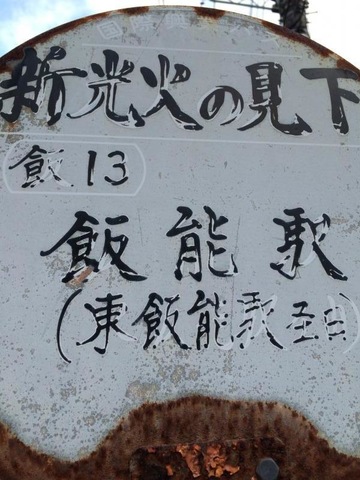 新光火の見下
飯13
飯能駅
(東飯能駅至由)